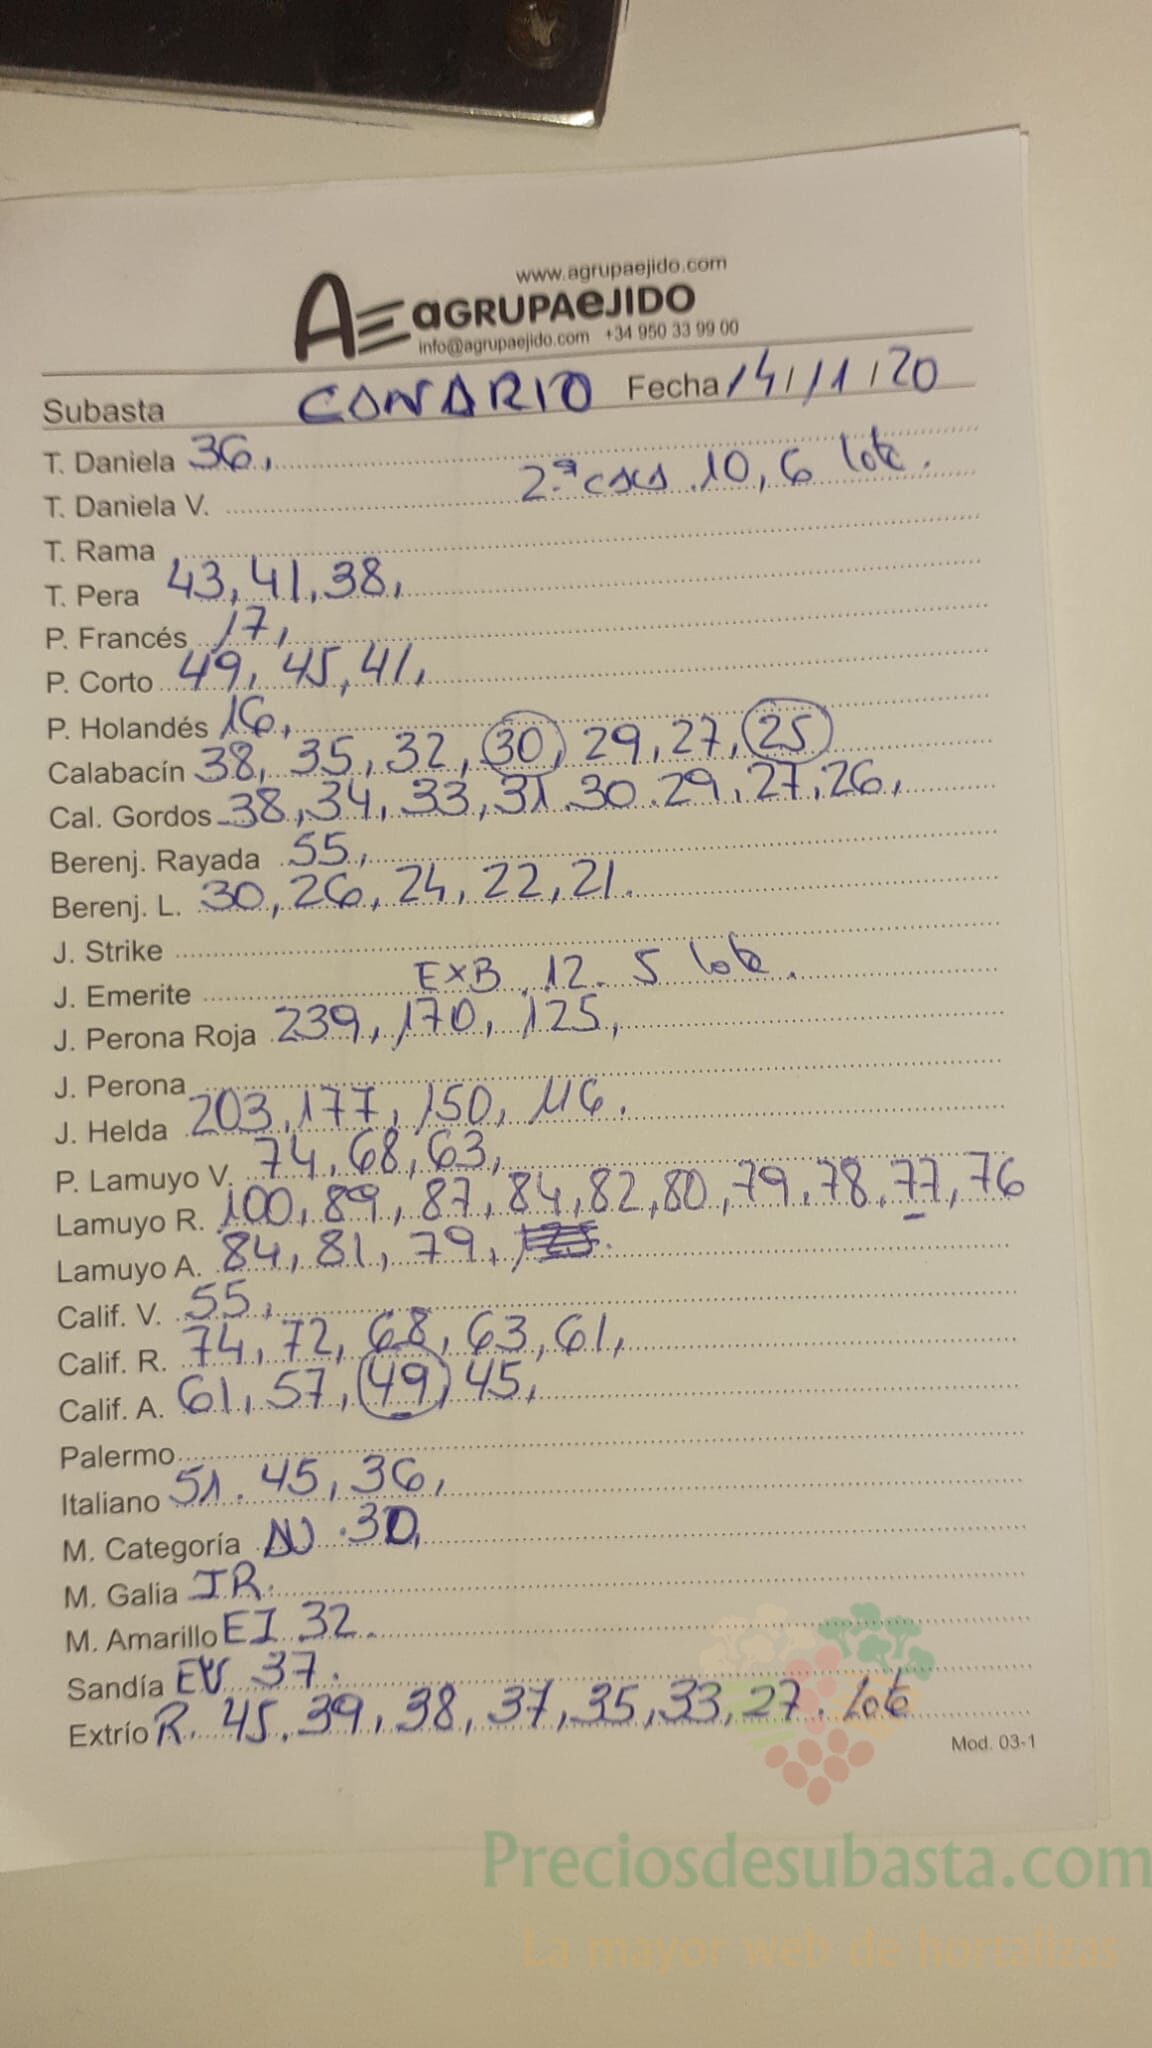 www.agrupaejido.com
AE aGRUPAeJIDO
info@agrupaejido.com +34 950 33 99 00
Subasta CONARIO Fecha 14/11/20
T. Daniela 36,
T. Daniela V. 2.ª caca 10, 6 lote.
T. Rama
T. Pera 43, 41, 38,
P. Francés 17,
P. Corto 49, 45, 41,
P. Holandés 16,
Calabacín 38, 35, 32, 30, 29, 27, 25
Cal. Gordos 38, 34, 33, 31. 30. 29, 27, 26,
Berenj. Rayada 55,
Berenj. L. 30, 26, 24, 22, 21.
J. Strike
J. Emerite EXB. 12. 5 lote.
J. Perona Roja 239, 170, 125,
J. Perona
J. Helda 203, 177, 150, 116.
P. Lamuyo V. 74, 68, 63,
Lamuyo R. 100, 89, 87, 84, 82, 80, 79. 78, 77, 76
Lamuyo A. 84, 81, 79,
Calif. V. 55,
Calif. R. 74, 72, 68, 63, 61,
Calif. A. 61, 57, 49, 45,
Palermo
Italiano 51. 45, 36,
M. Categoría 30,
M. Galia IR.
M. Amarillo EI 32.
Sandía 37.
Extrío R. 45. 39, 38, 37, 35, 33, 27. lote
Mod. 03-1
Preciosdesubasta.com
La mayor web de hortalizas